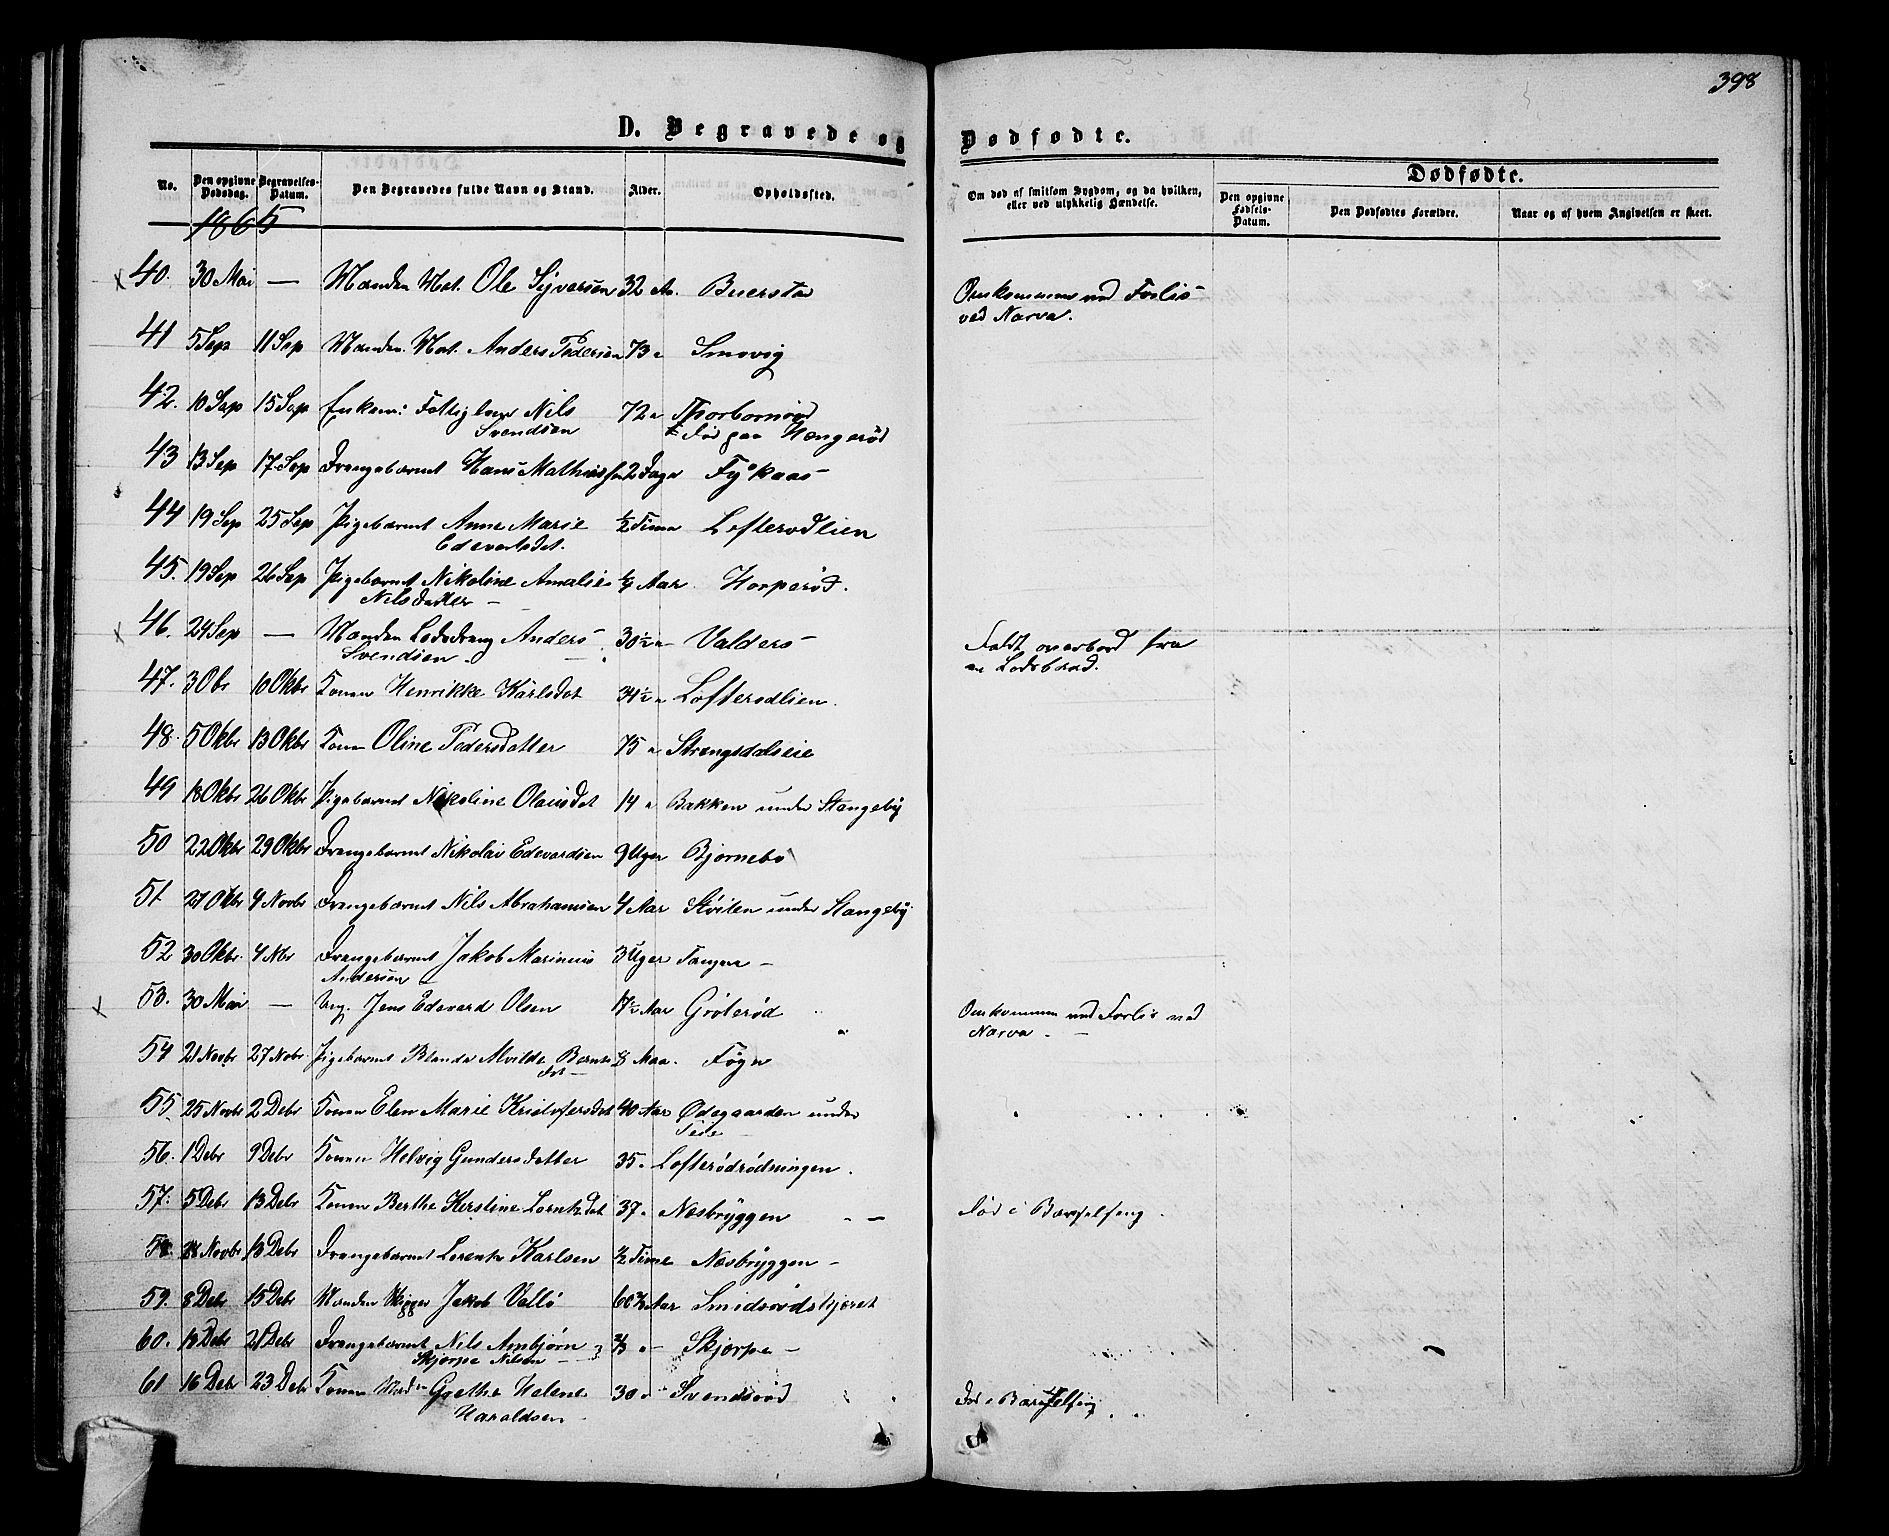 398
D. Begravede og Dødfødte.
No. Den opgivne Dødsdag. Begravelses-Datum. Den Begravedes fulde Navn og Stand. Alder. Opholdssted. Om død af smitsom Sygdom, og da hvilken, eller ved ulykkelig Hændelse. Dødfødte.
Den opgivne Fødsels-Datum. Den Dødfødtes Forældre. Naar og af hvem Angivelsen er skeet.
1865
40. 30 Mai — Manden Mat. Ole Syversen 32 Buersta Omkommen ved Forlis
ved Narva.
41 5 Sep 11 Sep Manden Mat. Anders Pedersen 73 Smovig
42. 10 Sep 15 Sep Enkem: Nils 72 Thorbornrød
Svendsen Født paa Hængerød
43 13 Sep 17 Sep Drengebarnet Hans 2 Dage
44 19 Sep 25 Sep Pigebarnet Anne Marie ½ Time Lofterødlien
Edevartsdet.
45. 19 Sep 26 Sep Pigebarnet Nikoline Amalie Aar Horperød.
Nilsdatter —
46. 24 Sep — Manden Lodsdreng Anders 30½ Valders Faldt overbord fra
Svendsen en Lodsbaad.
47. 3 Obr 10 Oktbr Konen Henrikke Karlsdot 34½ Lofterødlien.
48. 5 Oktbr 13 Oktbr Konen Oline Pedersdatter 75 Strengsdalseie
49 18 Oktbr 26 Oktbr Pigebarnet Nikoline Olausdet 14 Bakken under Stangeby
50 22 Oktbr 29 Oktbr Drengebarnet Nikolai Edevardsen 9 Uger Bjørnebo
51. 27 Oktbr 4 Novbr Drengebarnet Nils Abrahamsen 4 Aar Hvilen under Stangeby
52 30 Oktbr. 4 Nbr Drengebarnet Jakob Marinius 3 Uger Tangen —
Andersen
53. 30 Mai — Ung. Jens Edevard Olsen 17½ Aar Grøterød Omkommen ved Forlis ved
Narva —
54 21 Novbr 27 Novbr Pigebarnet Alvilde Bernts 8 Maa.
Dot
55. 25 Novbr 2 Debr Konen Elen Marie Kristofersdet 40 Aar Ødegaarden under
56. 1 Debr 9 Debr Konen Helvig Gundersdatter 35 Lofterødrødningen.
57. 5 Debr 13 Debr Konen Berthe Kerstine Lorntzdet 37 Næsbryggen — Død i Barselseng.
58. 28 Novbr 13 Debr Drengebarnet Lorents Karlsen ½ Time Næsbryggen —
59. 8 Debr 15 Debr Manden Jakob Vallø 60 Aar Smidsrødskjæret
60. 18 Debr 21 Debr Drengebarnet Nils Anbjørn ¾ Skjerpe —
Skjerpe Nilsen —
61 16 Debr 23 Debr Konen Grethe Helene 30 Svendsrød Død i Barselseng
Haraldsen